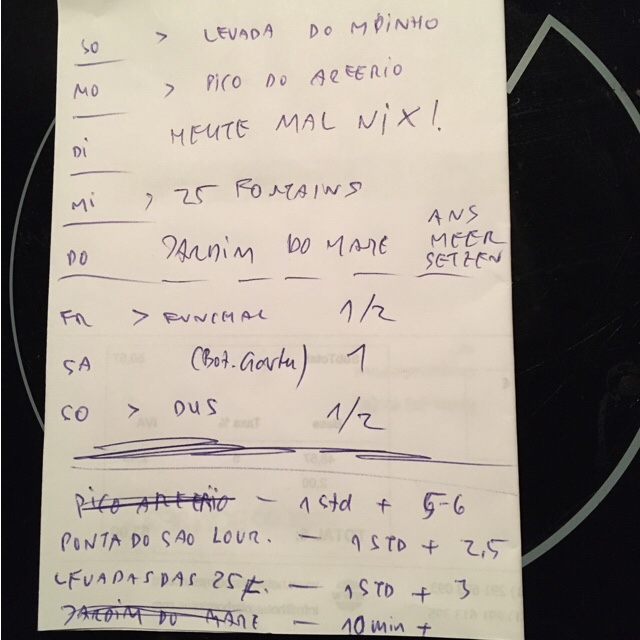 SO > LEVADA DO MOINHO
MO > PICO DO AREERIO
DI HEUTE MAL NIX!
MI > 25 FONTAINS
DO JARDIM DO MARE ANS MEER SETZEN
FR > FUNCHAL 1/2
SA (Bot. Garten) 1
SO > DUS 1/2
PICO AREERIO - 1 Std + 5-6
PONTA DO SAO LOUR. - 1 STD + 2,5
LEVADAS DAS 25 F. - 1 STD + 3
JARDIM DO MARE - 10 min +